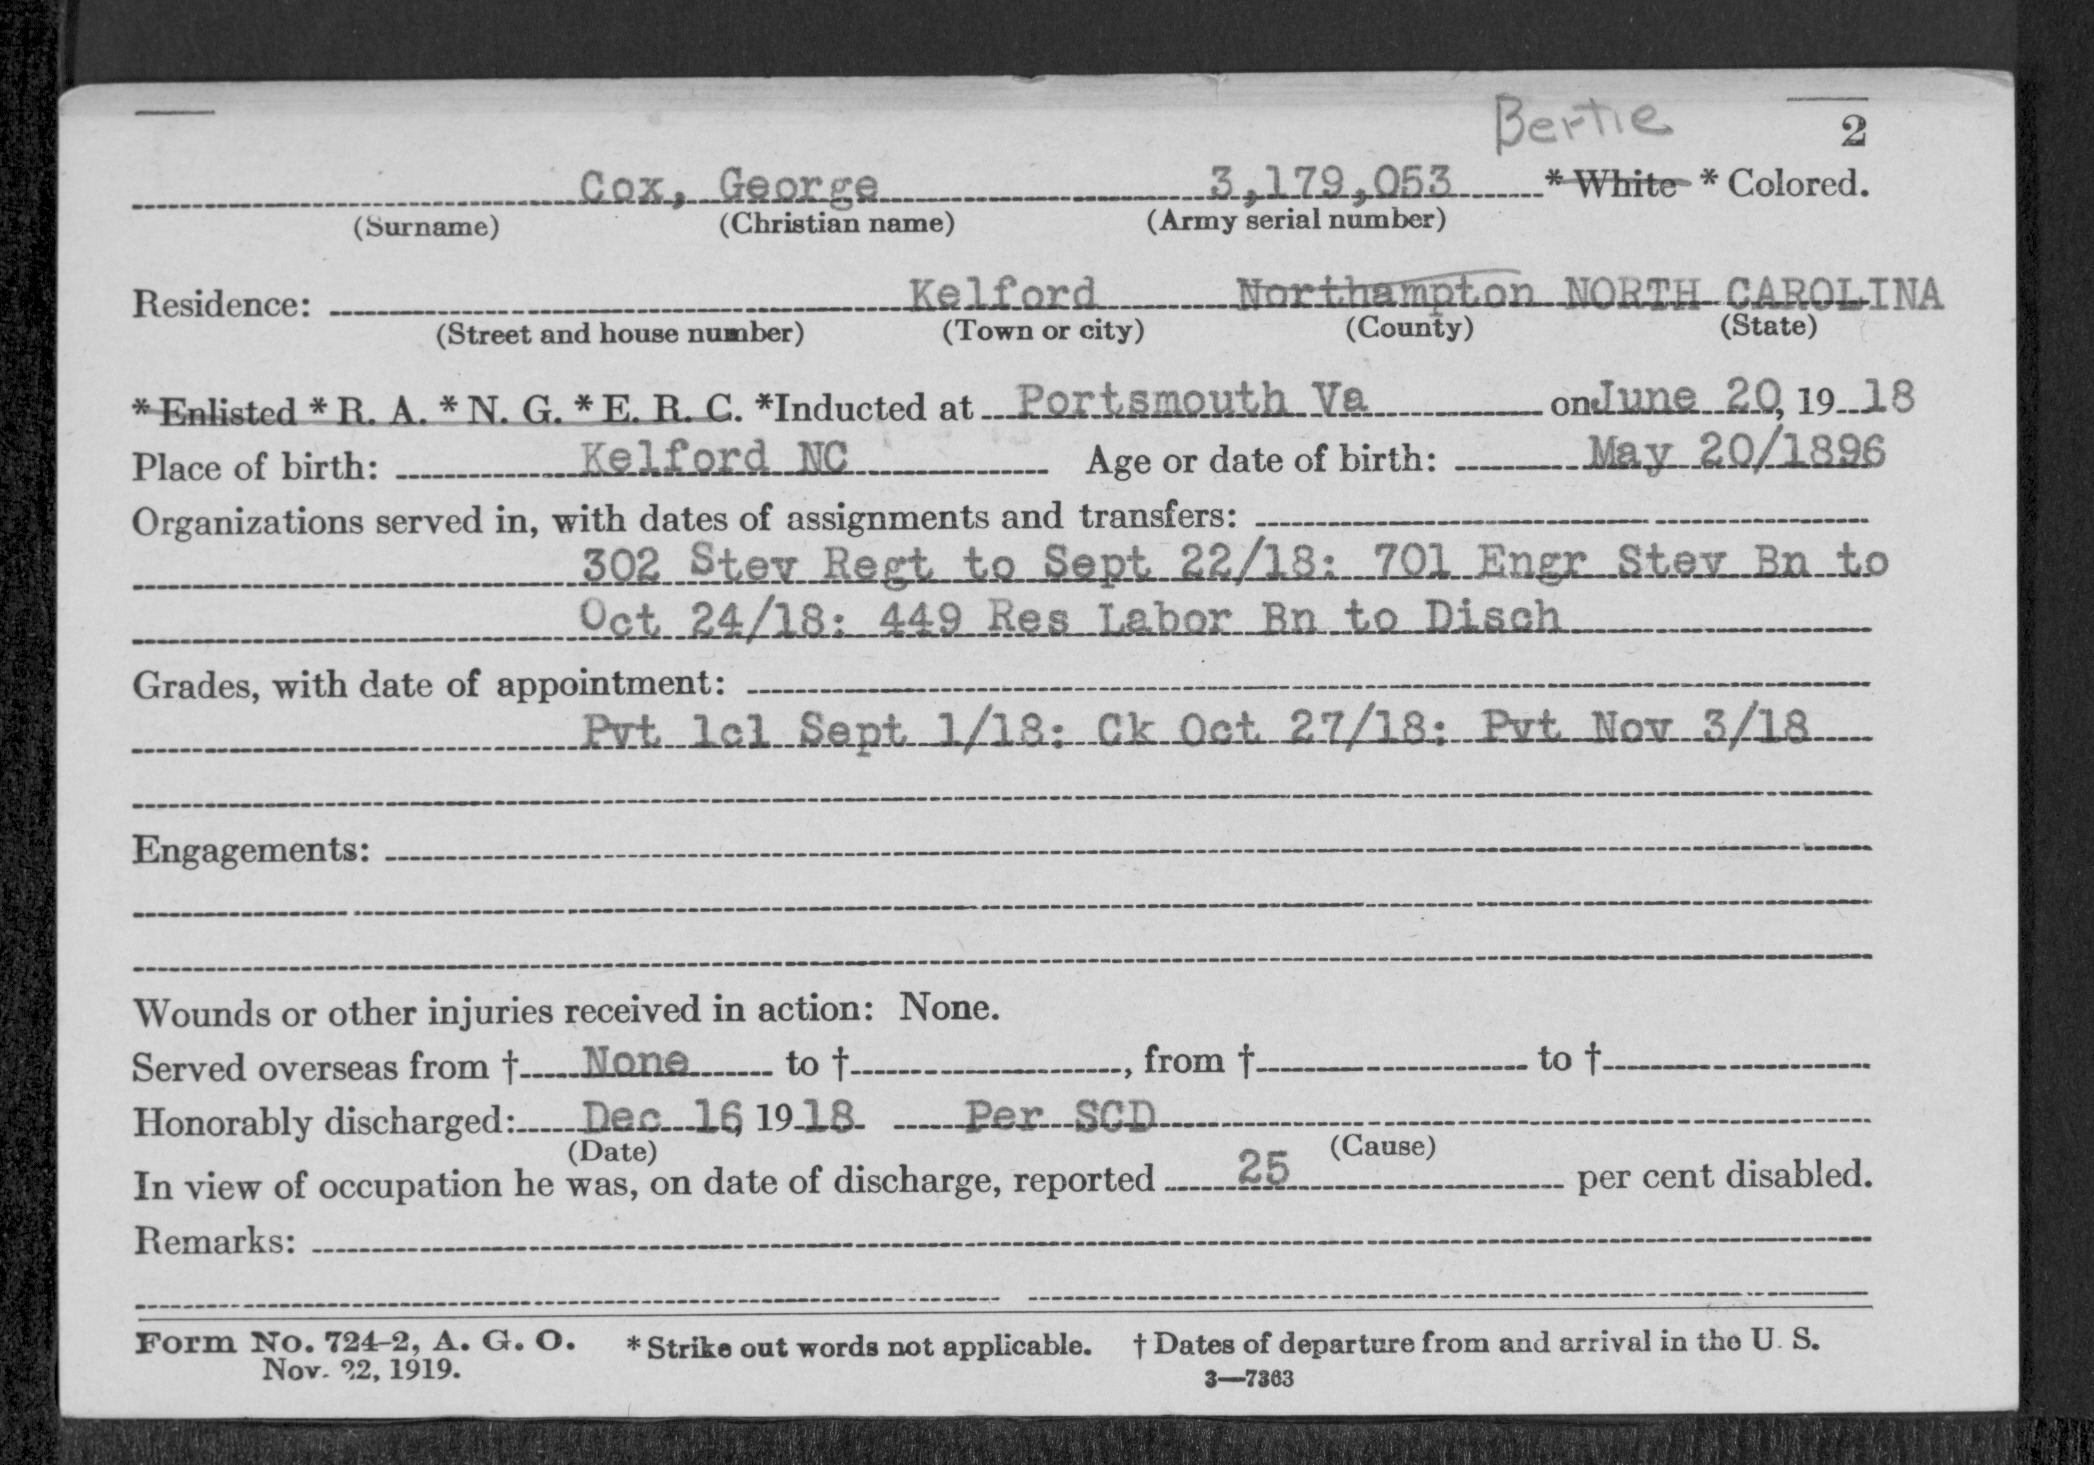 Bertie
2
Cox, George 3,179,053 * White * Colored.
(Surname) (Christian name) (Army serial number)
Residence: Kelford Northampton NORTH CAROLINA
(Street and house number) (Town or city) (County) (State)
* Enlisted * R. A. * N. G. * E. R. C. *Inducted at Portsmouth Va on June 20, 19 18
Place of birth: Kelford NC Age or date of birth: May 20/1896
Organizations served in, with dates of assignments and transfers:
302 Stev Regt to Sept 22/18: 701 Engr Stev Bn to
Oct 24/18: 449 Res Labor Bn to Disch
Grades, with date of appointment:
Pvt 1cl Sept 1/18: Ck Oct 27/18: Pvt Nov 3/18
Engagements:
Wounds or other injuries received in action: None.
Served overseas from † None to †, from † to †
Honorably discharged: Dec 16, 19 18 Per SCD
(Date) (Cause)
In view of occupation he was, on date of discharge, reported 25 per cent disabled.
Remarks:
Form No. 724-2, A. G. O. * Strike out words not applicable. † Dates of departure from and arrival in the U. S.
Nov. 22, 1919. 3—7363